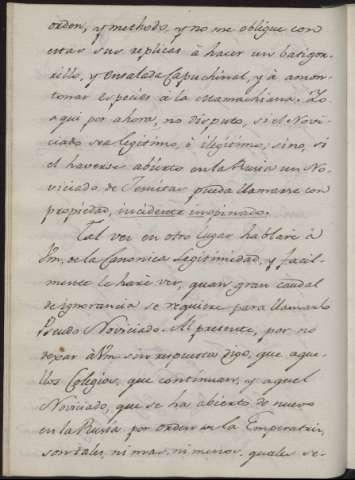 orden, y methodo, y no me obligue con
estas sus replicas à hacer un batigor-
rillo, y ensalada Capuchinal, y à amon-
tonar especies à la Mamachiana. Yo
aqui por ahora, no disputo, si el Novi-
ciado sea legitimo, ò ilegitimo, sino, si
el haverse abierto en la Rusia un No-
viciado de Jesuitas pueda llamarse con
propiedad, incidente inopinado.
Tal vez en otro lugar hablarè à
Vm. de la Canonica Legitimidad, y facil-
mente le harè ver, quan gran caudal
de ignorancia se requiere para llamarlo
Pseudo Noviciado. Al presente, por no
dexar à Vm sin respuesta digo, que aque-
llos Colegios, que continuan, y aquel
Noviciado, que se ha abierto de nuevo
en la Rusia por orden de la Emperatriz,
son tales, ni mas, ni menos, quales se-